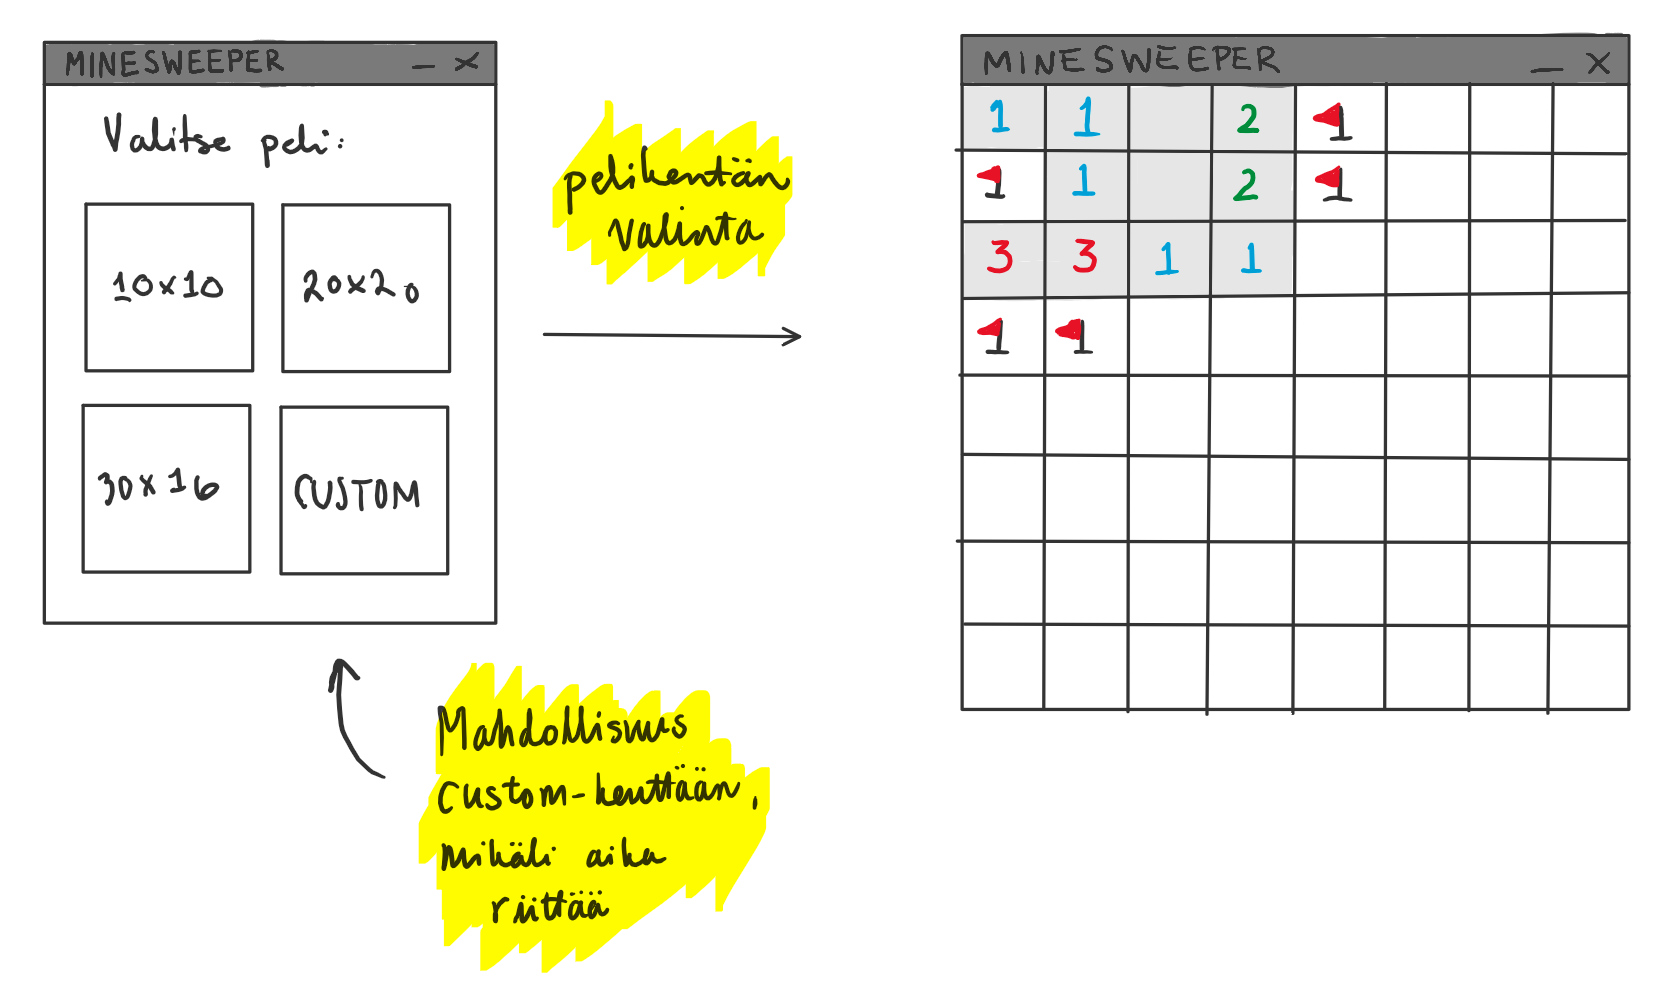 MINESWEEPER – ×
Valitse peli:
10×10
20×20
30×16
CUSTOM
pelikentän
valinta
Mahdollisuus
custom-kenttään,
mikäli aika
riittää
MINESWEEPER – ×
1 1 2
1 2
3 3 1 1